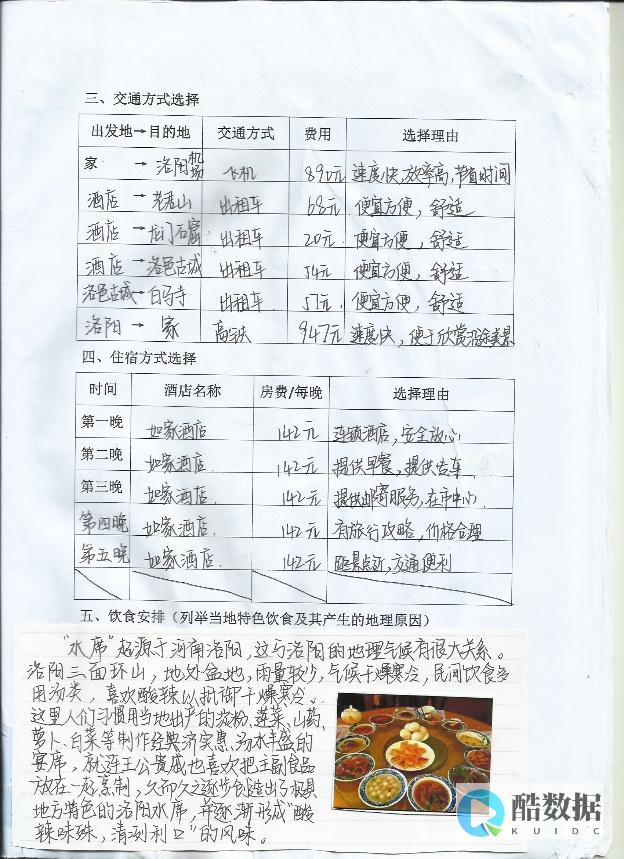 三、交通方式选择
出发地→目的地 交通方式 费用 选择理由
家 → 洛阳机场 飞机 890元 速度快,效率高,节省时间
酒店 → 老君山 出租车 68元 便宜方便,舒适
酒店 → 龙门石窟 出租车 20元 便宜方便,舒适
酒店 → 洛邑古城 出租车 54元 便宜方便,舒适
洛邑古城→白马寺 出租车 57元 便宜方便,舒适
洛阳 → 家 高铁 947元 速度快,便于欣赏沿途美景
四、住宿方式选择
时间 酒店名称 房费/每晚 选择理由
第一晚 如家酒店 142元 连锁酒店,安全放心
第二晚 如家酒店. 142元 提供早餐,提供专车.
第三晚 如家酒店 142元 提供邮寄服务,在市中心.
第四晚 如家酒店 142元 有旅行攻略,价格合理
第五晚 如家酒店. 142元 距景点近,交通便利
五、饮食安排(列举当地特色饮食及其产生的地理原因)
“水席”起源于河南洛阳,这与洛阳的地理气候有很大关系。
洛阳三面环山,地处盆地,雨量较少,气候干燥寒冷,民间饮食多
用汤类,喜欢酸辣以抵御干燥寒冷。
这里人们习惯用当地出产的淀粉、莲菜、山药、
萝卜、白菜等制作经典济实惠、汤水丰盛的
宴席,就连王公贵戚也喜欢把主副食品
放在一起烹制,久而久之逐步创造出了极具
地方特色的洛阳水席,并逐渐形成“酸
辣味殊,清爽利口”的风味。
酷数据
KUIDC